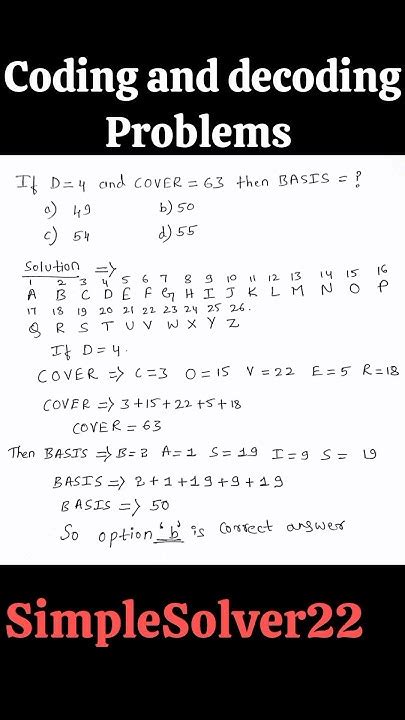 Coding and decoding
Problems
If D=4 and COVER = 63 then BASIS = ?
a) 49 b) 50
c) 54 d) 55
Solution =>
1 2 3 4 5 6 7 8 9 10 11 12 13 14 15 16
A B C D E F G H I J K L M N O P
17 18 19 20 21 22 23 24 25 26.
Q R S T U V W X Y Z
If D=4.
COVER => C=3 O=15 V=22 E=5 R=18
COVER => 3+15+22+5+18
COVER = 63
Then BASIS => B=2 A=1 S=19 I=9 S= 19
BASIS => 2+1+19+9+19
BASIS => 50
So option 'b' is correct answer
SimpleSolver22